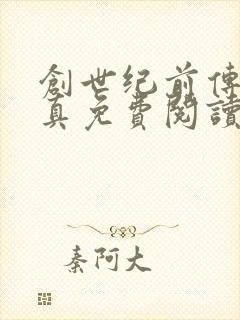 創世纪前傳
真免費閱讀
秦阿大